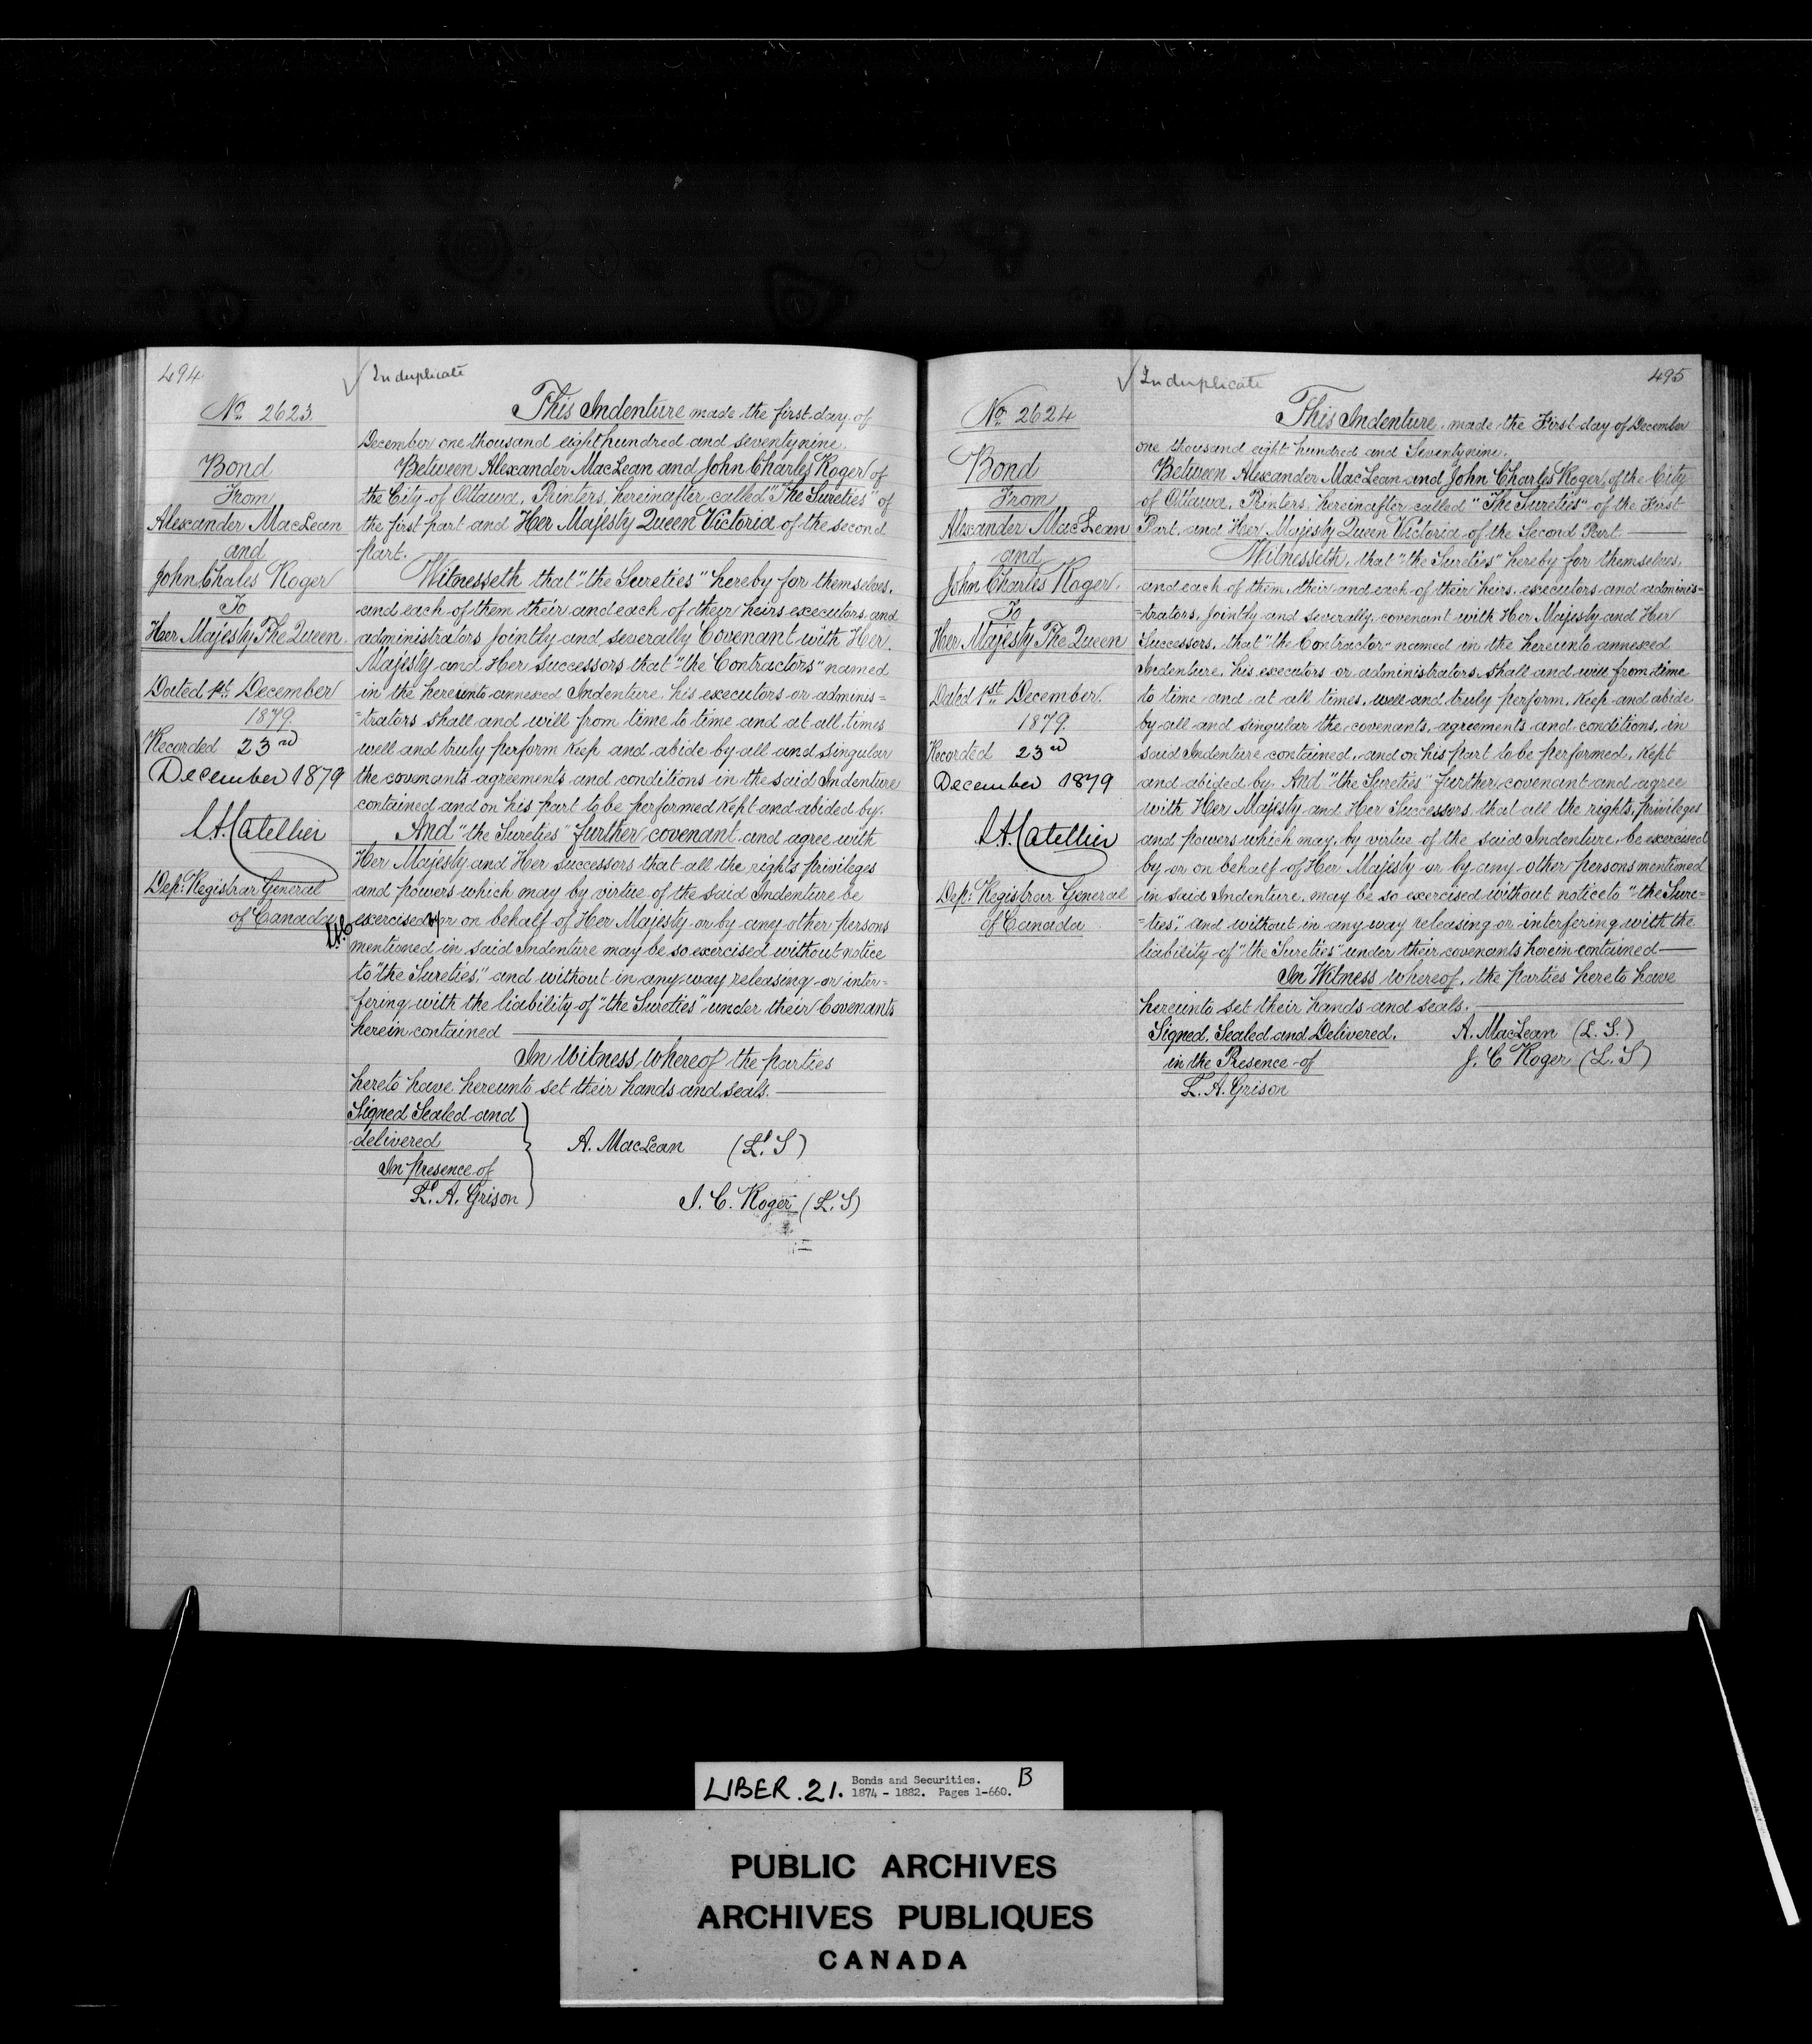 494
√ In duplicate
No 2623
Bond
From
Alexander MacLean
and
John Chales Roger
To
Her Majesty The Queen.
Dated 1st. December
1879.
Recorded 23rd
December 1879
L.A. Catellier
Dep: Registrar General
of Canada
This Indenture made the first day of
December one thousand eight hundred and seventy nine.
Between Alexander MacLean and John Charles Roger of
the City of Ottawa, Printers, hereinafter called "The Sureties" of
the first part and Her Majesty Queen Victoria of the second
part.
Witnesseth that "the Sureties" hereby for themselves,
and each of them their and each of their heirs executors and
administrators Jointly and severally Covenant with Her
Majesty and Her successors that "the Contractors" named
in the hereunto annexed Indenture, his executors or adminis=
=trators shall and will from time to time and at all times
well and truly perform keep and abide by all and singular
the covenants agreements and conditions in the said Indenture
contained and on his part to be performed kept and abided by.
And "the Sureties" further covenant and agree with
Her Majesty and Her successors that all the rights privileges
and powers which may by virtue of the said Indenture be
exercised or on behalf of Her Majesty or by any other persons
mentioned in said Indenture may be so exercised without notice
to "the Sureties," and without in any way releasing or inter=
=fering with the liability of "the Sureties" under their Covenants
herein contained
In Witness Whereof the parties
hereto have hereunto set their hands and seals.
Signed Sealed and
delivered
In presence of
L. A. Grison
A. MacLean (L. S)
J. C. Roger (L. S)
495
√ In duplicate
No 2624
Bond
From
Alexander MacLean
and
John Charles Roger.
To
Her Majesty The Queen
Dated 1st December.
1879.
Recorded 23rd
December 1879
L.A. Catellier
Dep: Registrar General
of Canada
This Indenture, made the First day of December
one thousand eight hundred and Seventy nine.
Between Alexander MacLean and John Charles Roger, of the City
of Ottawa, Printers hereinafter called "The Sureties" of the First
Part, and Her Majesty Queen Victoria of the Second Part
Witnesseth, that "the Sureties" hereby for themselves,
and each of them, their and each of their heirs, executors and adminis=
=trators, Jointly and severally, covenant with Her Majesty and Her
Successors, that "the Contractor" named in the hereunto annexed
Indenture, his executors or administrators, shall and will from time
to time and at all times, well and truly perform, keep and abide
by all and singular the covenants, agreements and conditions, in
said Indenture contained, and on his part to be performed, kept
and abided by. And "the Sureties" further covenant and agree
with Her Majesty and Her Successors, that all the rights, privileges
and powers which may, by virtue of the said Indenture, be exercised
by or on behalf of Her Majesty or by any other persons mentioned
in said Indenture, may be so exercised without notice to "the Sure=
=ties", and without in any way releasing or interfering with the
liability of "the Sureties" under their covenants herein contained
In Witness whereof, the parties hereto have
hereunto set their hands and seals.
Signed, Sealed and Delivered.
in the Presence of
L. A. Grison
A. MacLean (L. S.)
J. C Roger (L. S)
LIBER. 21. Bonds and Securities. B
1874 - 1882. Pages 1-660.
PUBLIC ARCHIVES
ARCHIVES PUBLIQUES
CANADA